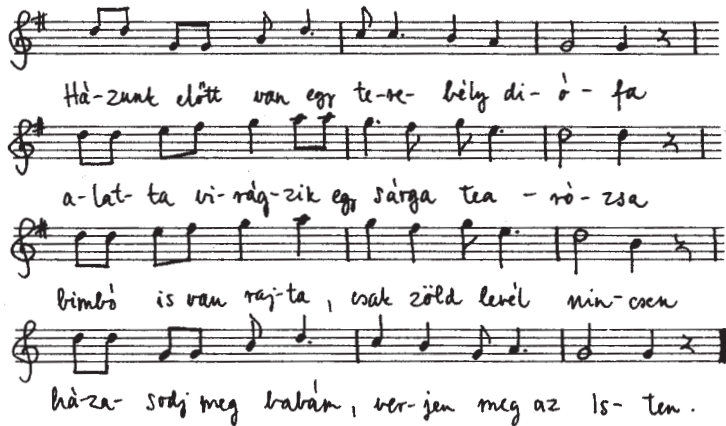 Há-zunk előtt van egy te-re-bély di-ó-fa
a-lat-ta vi-rág-zik egy sárga tea-ró-zsa
bimbó is van raj-ta, csak zöld levél nin-csen
há-za-sodj meg babám, ver-jen meg az Is-ten.